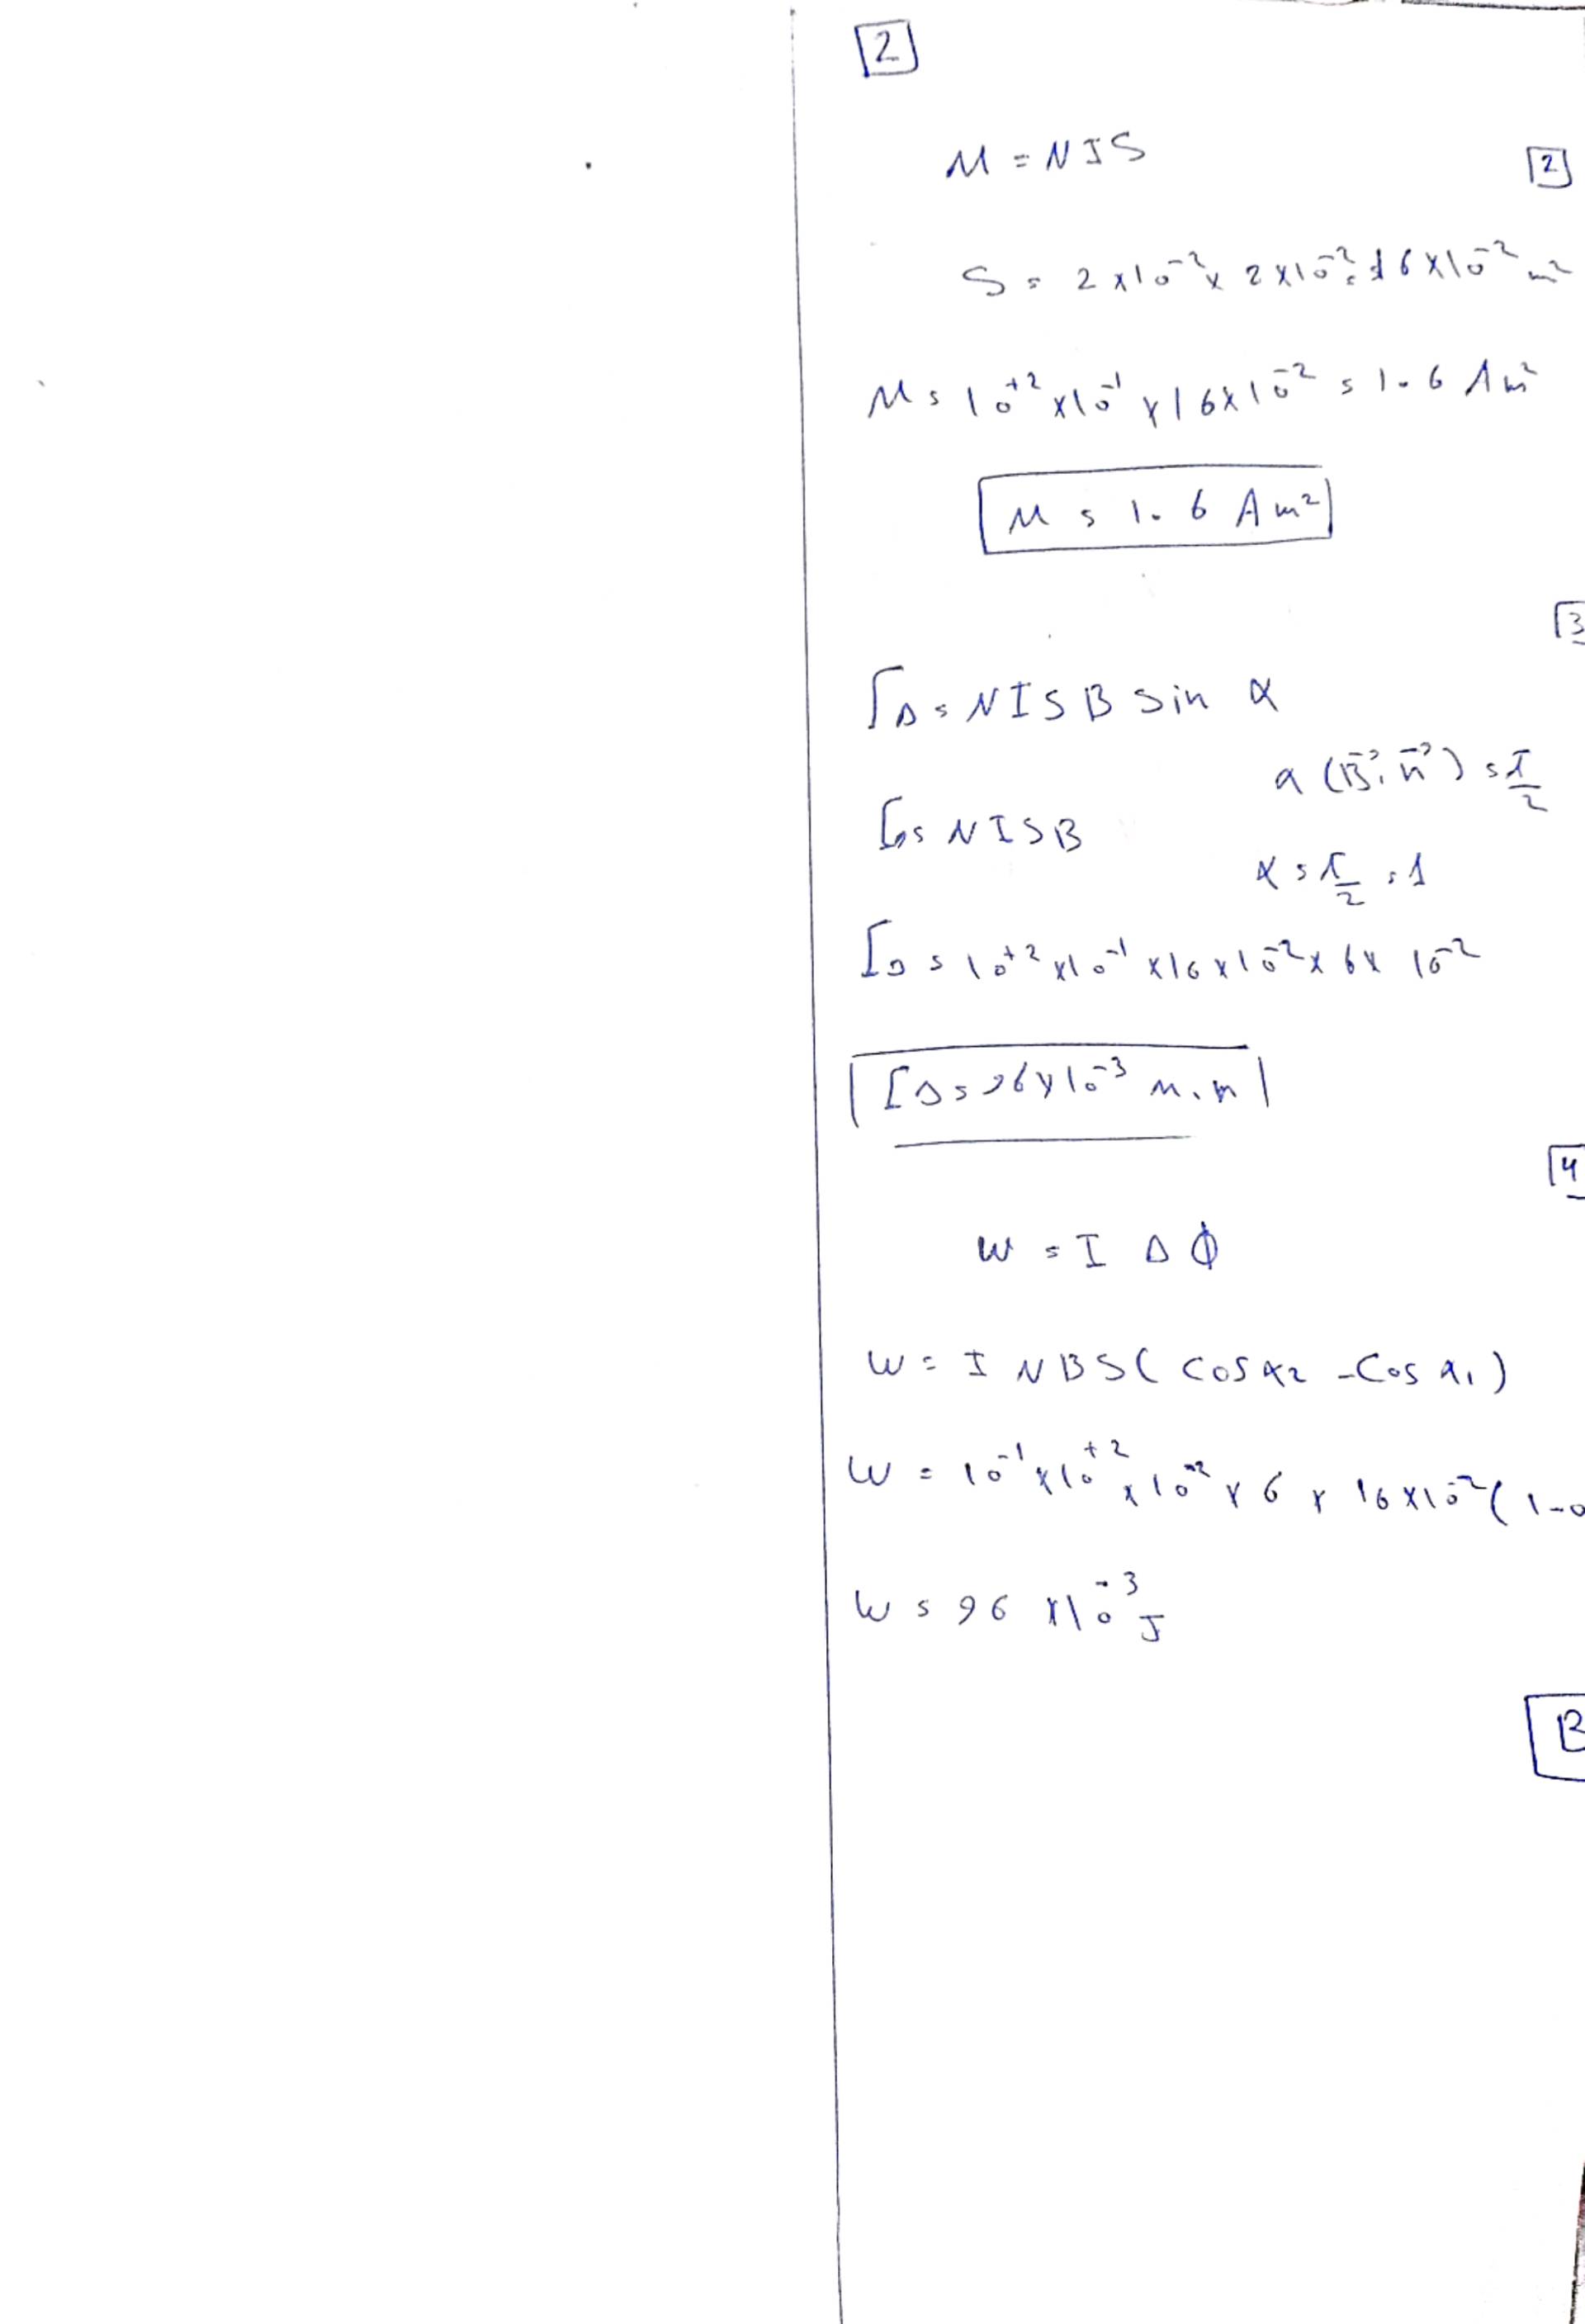 2
M = NIS
2
S = 2 x 10⁻² x 2 x 10⁻² = 16 x 10⁻² m²
M = 10⁺² x 10⁻¹ x 16 x 10⁻² = 1.6 Am²
M = 1.6 Am²
3
Γ_Δ = NISB sin α
α (B⃗, n⃗) = π/2
Γ_Δ = NISB
α = π/2 = 1
Γ_Δ = 10⁺² x 10⁻¹ x 16 x 10⁻² x 6 x 10⁻²
Γ_Δ = 96 x 10⁻³ m.n
4
W = I Δ Φ
W = I NBS (cos α₂ - cos α₁)
W = 10⁻¹ x 10⁺² x 10⁻² x 6 x 16 x 10⁻² (1-0
W = 96 x 10⁻³ J
B